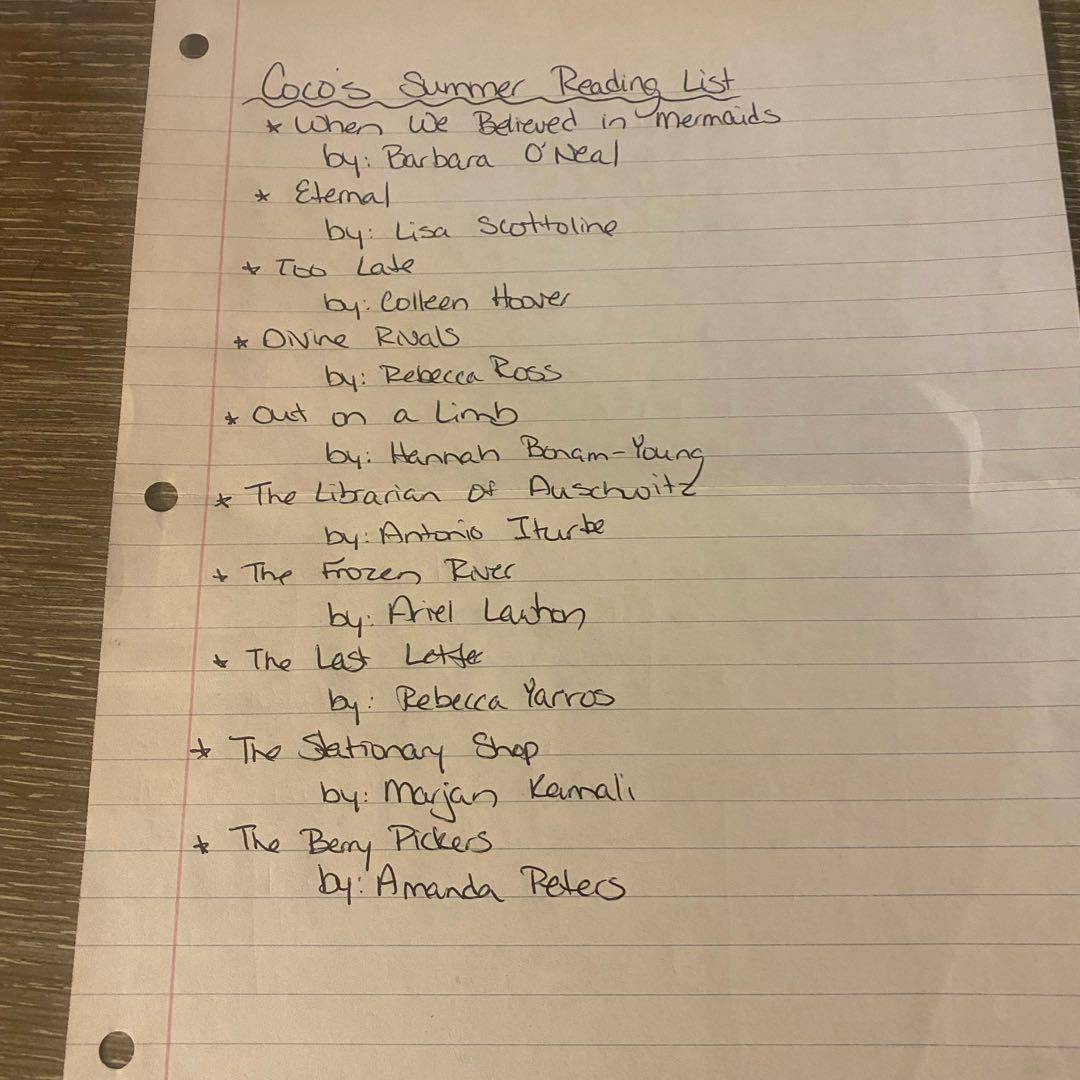 Coco's Summer Reading List
* When We Believed in Mermaids
by: Barbara O'Neal
* Eternal
by: Lisa Scottoline
* Too Late
by: Colleen Hoover
* Divine Rivals
by: Rebecca Ross
* Out on a Limb
by: Hannah Bonam-Young
* The Librarian of Auschwitz
by: Antonio Iturbe
* The Frozen River
by: Ariel Lawhon
* The Last Letter
by: Rebecca Yarros
* The Stationary Shop
by: Marjan Kamali
* The Berry Pickers
by: Amanda Peters